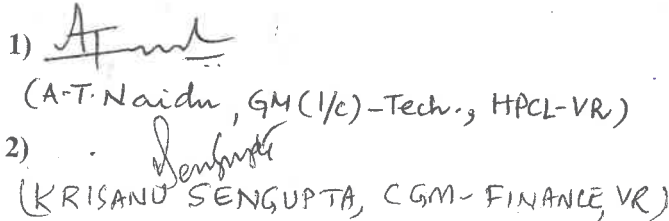 1)
(A.T. Naidu, GM (I/c) - Tech., HPCL-VR)
2) Sengupta
(KRISANU SENGUPTA, CGM - FINANCE, VR)